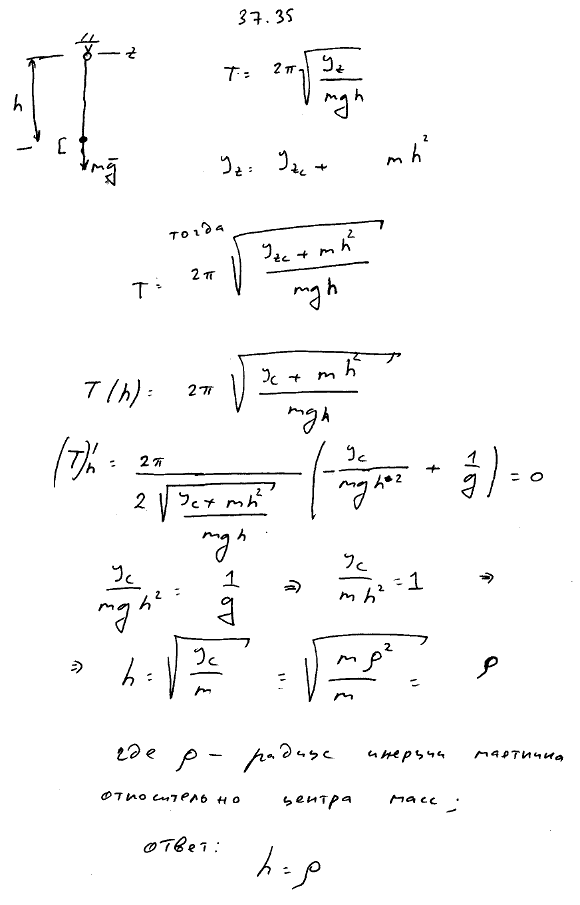 37.35
z
h
C
mḡ
T = 2π√(J_z / mgh)
J_z = J_zc + mh²
тогда
T = 2π√((J_zc + mh²) / mgh)
T(h) = 2π√((J_c + mh²) / mgh)
(T)'_h = 2π / (2√((J_c + mh²) / mgh)) (-J_c / mgh² + 1/g) = 0
J_c / mgh² = 1/g ⇒ J_c / mh² = 1 ⇒
⇒ h = √(J_c / m) = √(mρ² / m) = ρ
где ρ – радиус инерции маятника
относительно центра масс;
ответ:
h = ρ